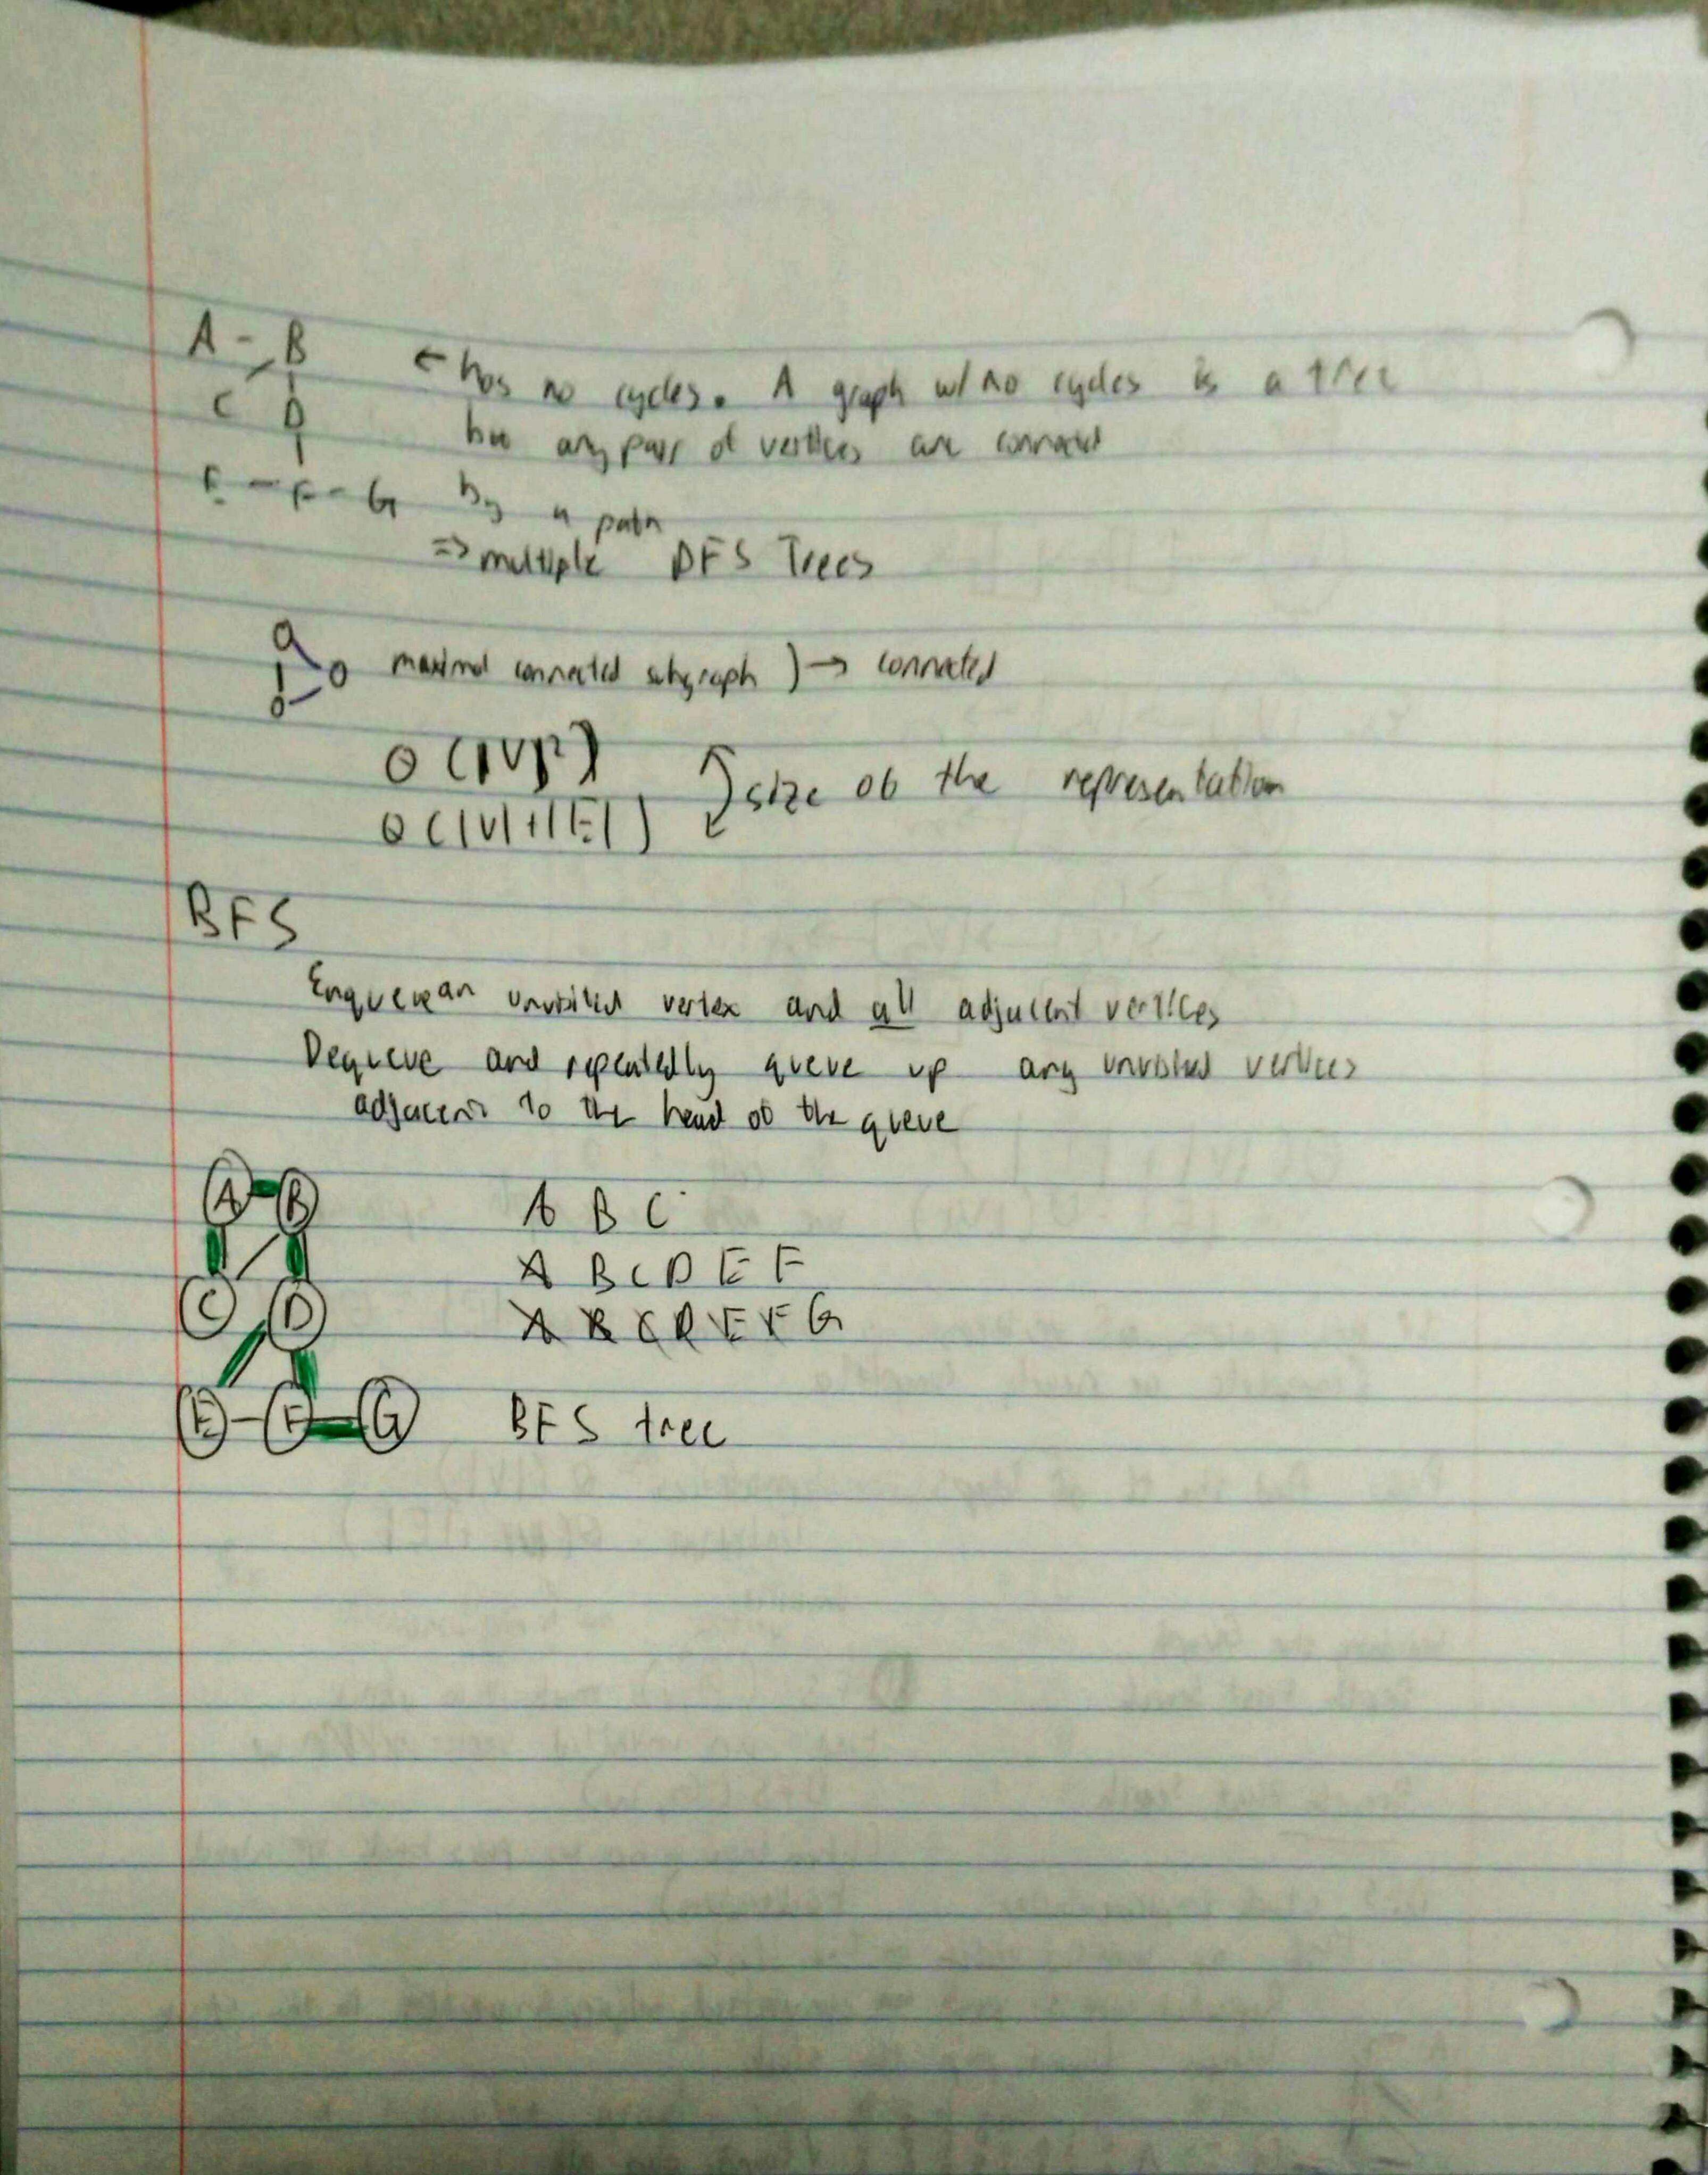 A - B
C D
E - F - G
← has no cycles. A graph w/ no cycles is a tree
any pair of vertices are connect
by a path
⇒ multiple DFS Trees
maximal connected subgraph ) → connected
Θ(|V|²)
Θ(|V|+|E|)
size of the representation
BFS
Enqueue an unvisited vertex and all adjacent vertices
Dequeue and repeatedly queue up any unvisited vertices
adjacent to the head of the queue
A B
C D
E - F G
A B C
A B C D E F
A B C D E F G
BFS tree